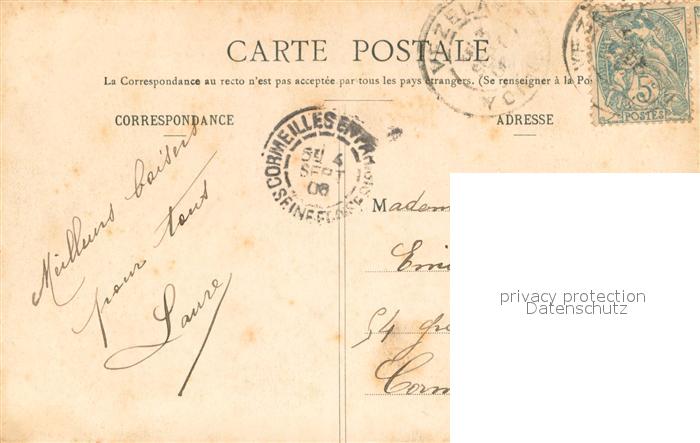 CARTE POSTALE
La Correspondance au recto n'est pas acceptée par tous les pays étrangers. (Se renseigner à la Po
CORRESPONDANCE
ADRESSE
VÉZEL
5c
POSTES
CORMEILLES EN PA
4
SEPT
06
SEINE ET OISE
Meilleurs baisers
pour tous
Laure
Madem
Emi
54
Corm
privacy protection
Datenschutz